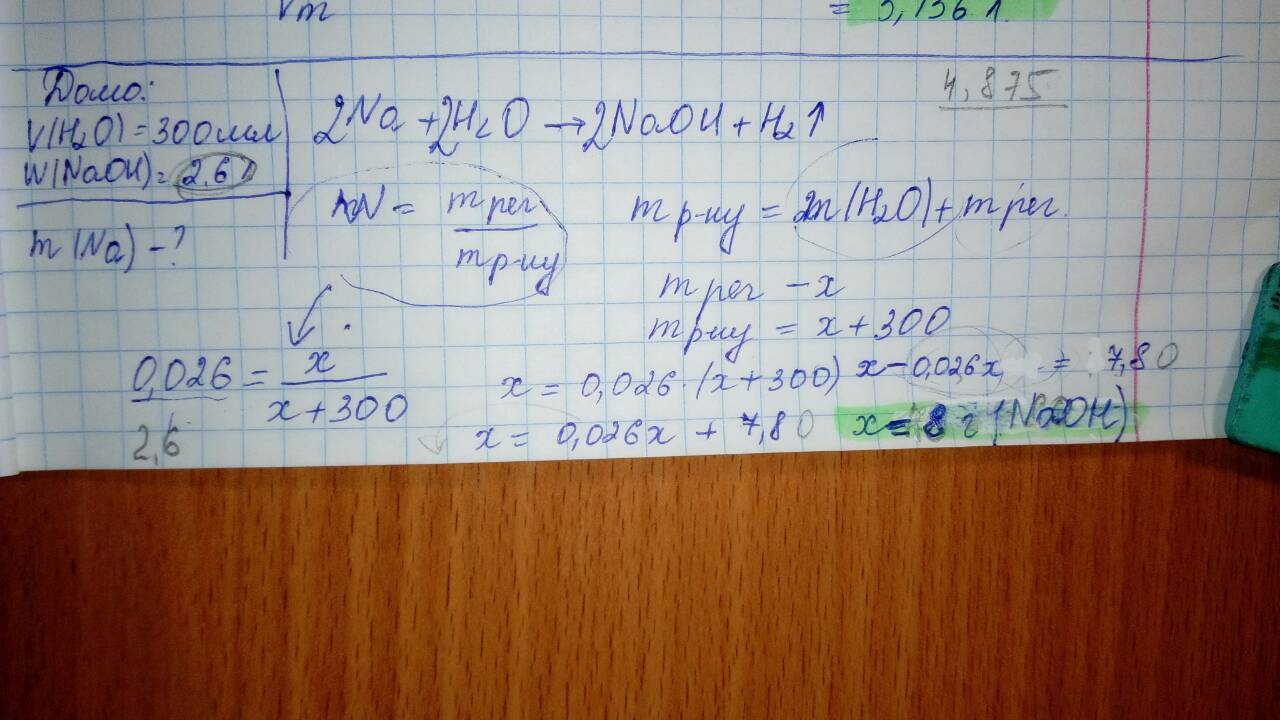 Vm = 3,136 л.
Дано:
V(H₂O) = 300 мл
W(NaOH) = 2,6%
m(Na) - ?
4,875
2Na + 2H₂O → 2NaOH + H₂↑
W = m рег / m р-ну
m р-ну = m(H₂O) + m рег.
m рег - x
m р-ну = x + 300
0,026 = x / x + 300
2,6
x = 0,026 · (x + 300)
x = 0,026x + 7,80
x - 0,026x = 7,80
x = 8 г (NaOH)